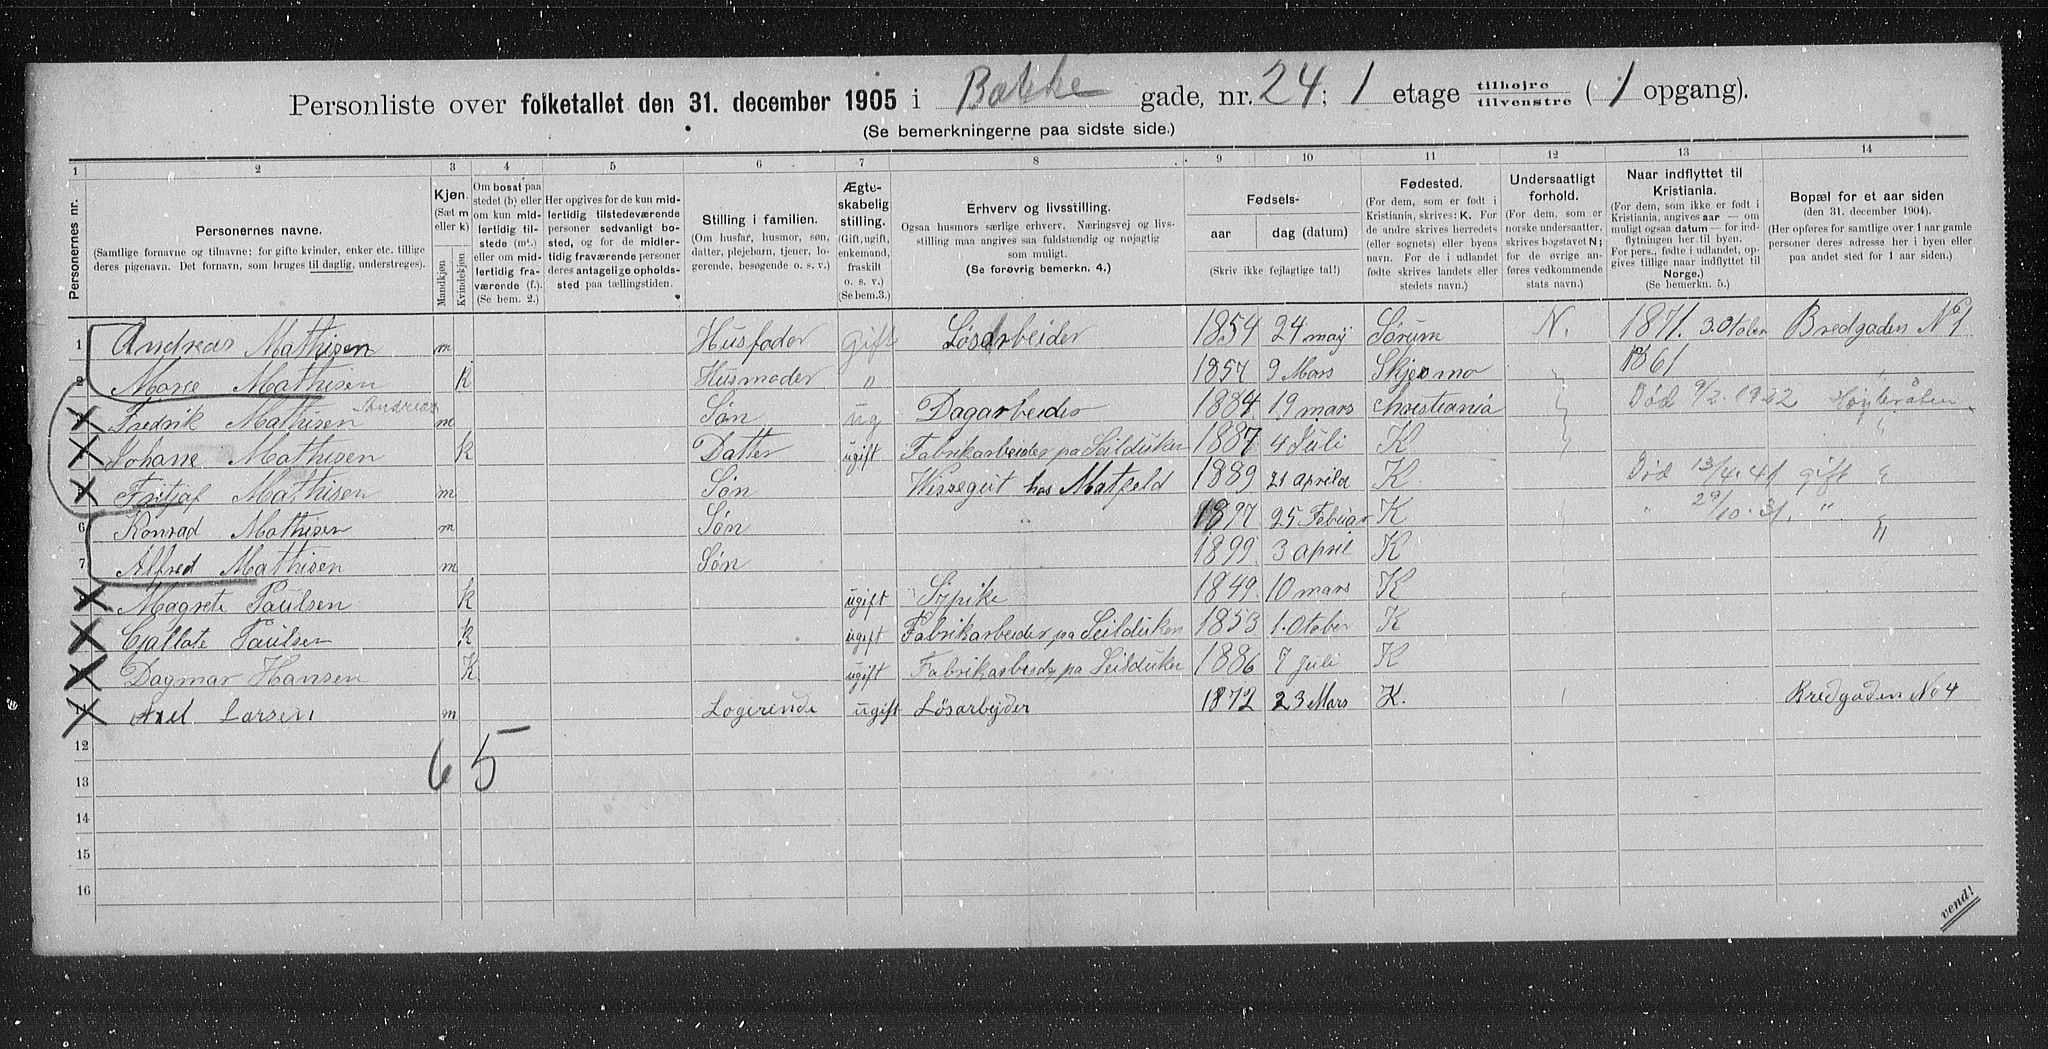 Personliste over folketallet den 31. december 1905 i Bakke gade, nr. 24; 1 etage tilhøjre tilvenstre ( 1 opgang).
(Se bemerkningerne paa sidste side.)
1 2 3 4 5 6 7 8 9 10 11 12 13 14
Personernes nr.
Personernes navne.
(Samtlige fornavne og tilnavne; for gifte kvinder, enker etc. tillige
deres pigenavn. Det fornavn, som bruges til daglig, understreges).
Kjøn.
(Sæt m
eller k)
Mandkjøn
Kvindekjøn
Om bosat paa
stedet (b) eller
om kun mid-
lertidig til-
stede (mt.)
eller om mid-
lertidig fra-
værende (f.).
(Se bem. 2.)
Her opgives for de kun mid-
lertidig tilstedeværende
personer sedvanligt bo-
sted, og for de midler-
tidig fraværende personer
deres antagelige opholds-
sted paa tællingstiden.
Stilling i familien.
(Om husfar, husmor, søn,
datter, plejebarn, tjener, lo-
gerende, besøgende o. s. v.)
Ægte-
skabelig
stilling.
(Gift, ugift,
enkemand,
fraskilt
o. s. v.)
(Se bem.3.)
Erhverv og livsstilling.
Ogsaa husmors særlige erhverv. Næringsvej og livs-
stilling maa angives saa fuldstændig og nøjagtig
som muligt.
(Se forøvrig bemerkn. 4.)
Fødsels-
aar dag (datum)
(Skriv ikke fejlagtige tal!)
Fødested.
(For dem, som er født i
Kristiania, skrives: K. For
de andre skrives herredets
(eller sognets) eller byens
navn. For de i udlandet
fødte skrives landets eller
stedets navn.)
Undersaatligt
forhold.
(For dem, som er
norske undersaatter,
skrives bogstavet N;
for de øvrige an-
føres vedkommende
stats navn.)
Naar indflyttet til
Kristiania.
(For dem, som ikke er født i
Kristiania, angives aar — om
muligt ogsaa datum — for ind-
flytningen her til byen.
For pers., fødte i udlandet, op-
gives tillige naar indflyttet til
Norge.)
(Se bemerkn. 5.)
Bopæl for et aar siden
(den 31. december 1904).
(Her opføres for samtlige over 1 aar gamle
personer deres adresse her i byen eller
paa andet sted for 1 aar siden.)
1 Andreas Mathisen m Husfader gift Løsarbeider 1854 24 maj Sørum N. 1871. 3. Otober Bredgaden No 1
2 Marie Mathisen k Husmoder " 1857 9 Mars 1861 "
Fredrik Andreas Mathisen m Søn ug Dagarbeider 1884 19 mars Christiania Død 9/2.
Johane Mathisen k Datter ugift Fabrikarbeider pa Seilduken 1887 4 Juli K "
Fritjof Mathisen m Søn Visergut hos 1889 21 aprild K. Død 13/4.41 gift "
6 Konrad Mathisen m Søn " 1897 25 Febuar K " 29/10.31. "
7 Alfred Mathisen m Søn 1899 3 april K "
Magrete Paulsen k ugift Sypike 1849 10 mars K
Paulsen k ugift Fabrikarbeider pa Seilduken 1853 1. Otober K
Dagmar Hansen K ugift Fabrikarbeider pa Seilduken 1886 7 Juli K
11 Axel Larsen m Logerende ugift Løsarbejder 1872 23 Mars K. Bredgaden No 4
12
6 5
13
14
15
16
vend!